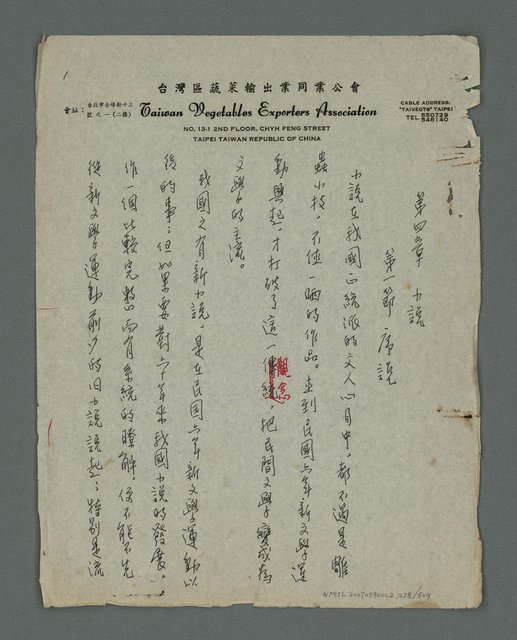 台灣區蔬菜輸出業同業公會
會址：台北市赤峰街十三號之一（二樓）
Taiwan Vegetables Exporters Association
CABLE ADDRESS:
"TAIVEGTS" TAIPEI
TEL 550729
548140
NO. 13-1 2ND FLOOR. CHYH FENG STREET
TAIPEI TAIWAN REPUBLIC OF CHINA
第四章 小説
第一節 序説
小說在我國正統派的文人心目中，都不過是雕
蟲小技，不值一晒的作品。直到民國六年新文學運
動興起，才打破了這一傳統觀念，把民間文學變成為
文學的主流。
我國之有新小說，是在民國六年新文學運動以
後的事；但如果要對今年來我國小說的發展，
作一個比較完整而有系統的瞭解，便不能不先
從新文學運動前夕的旧小說說起，特別是流
NMTL20070590002 278/509